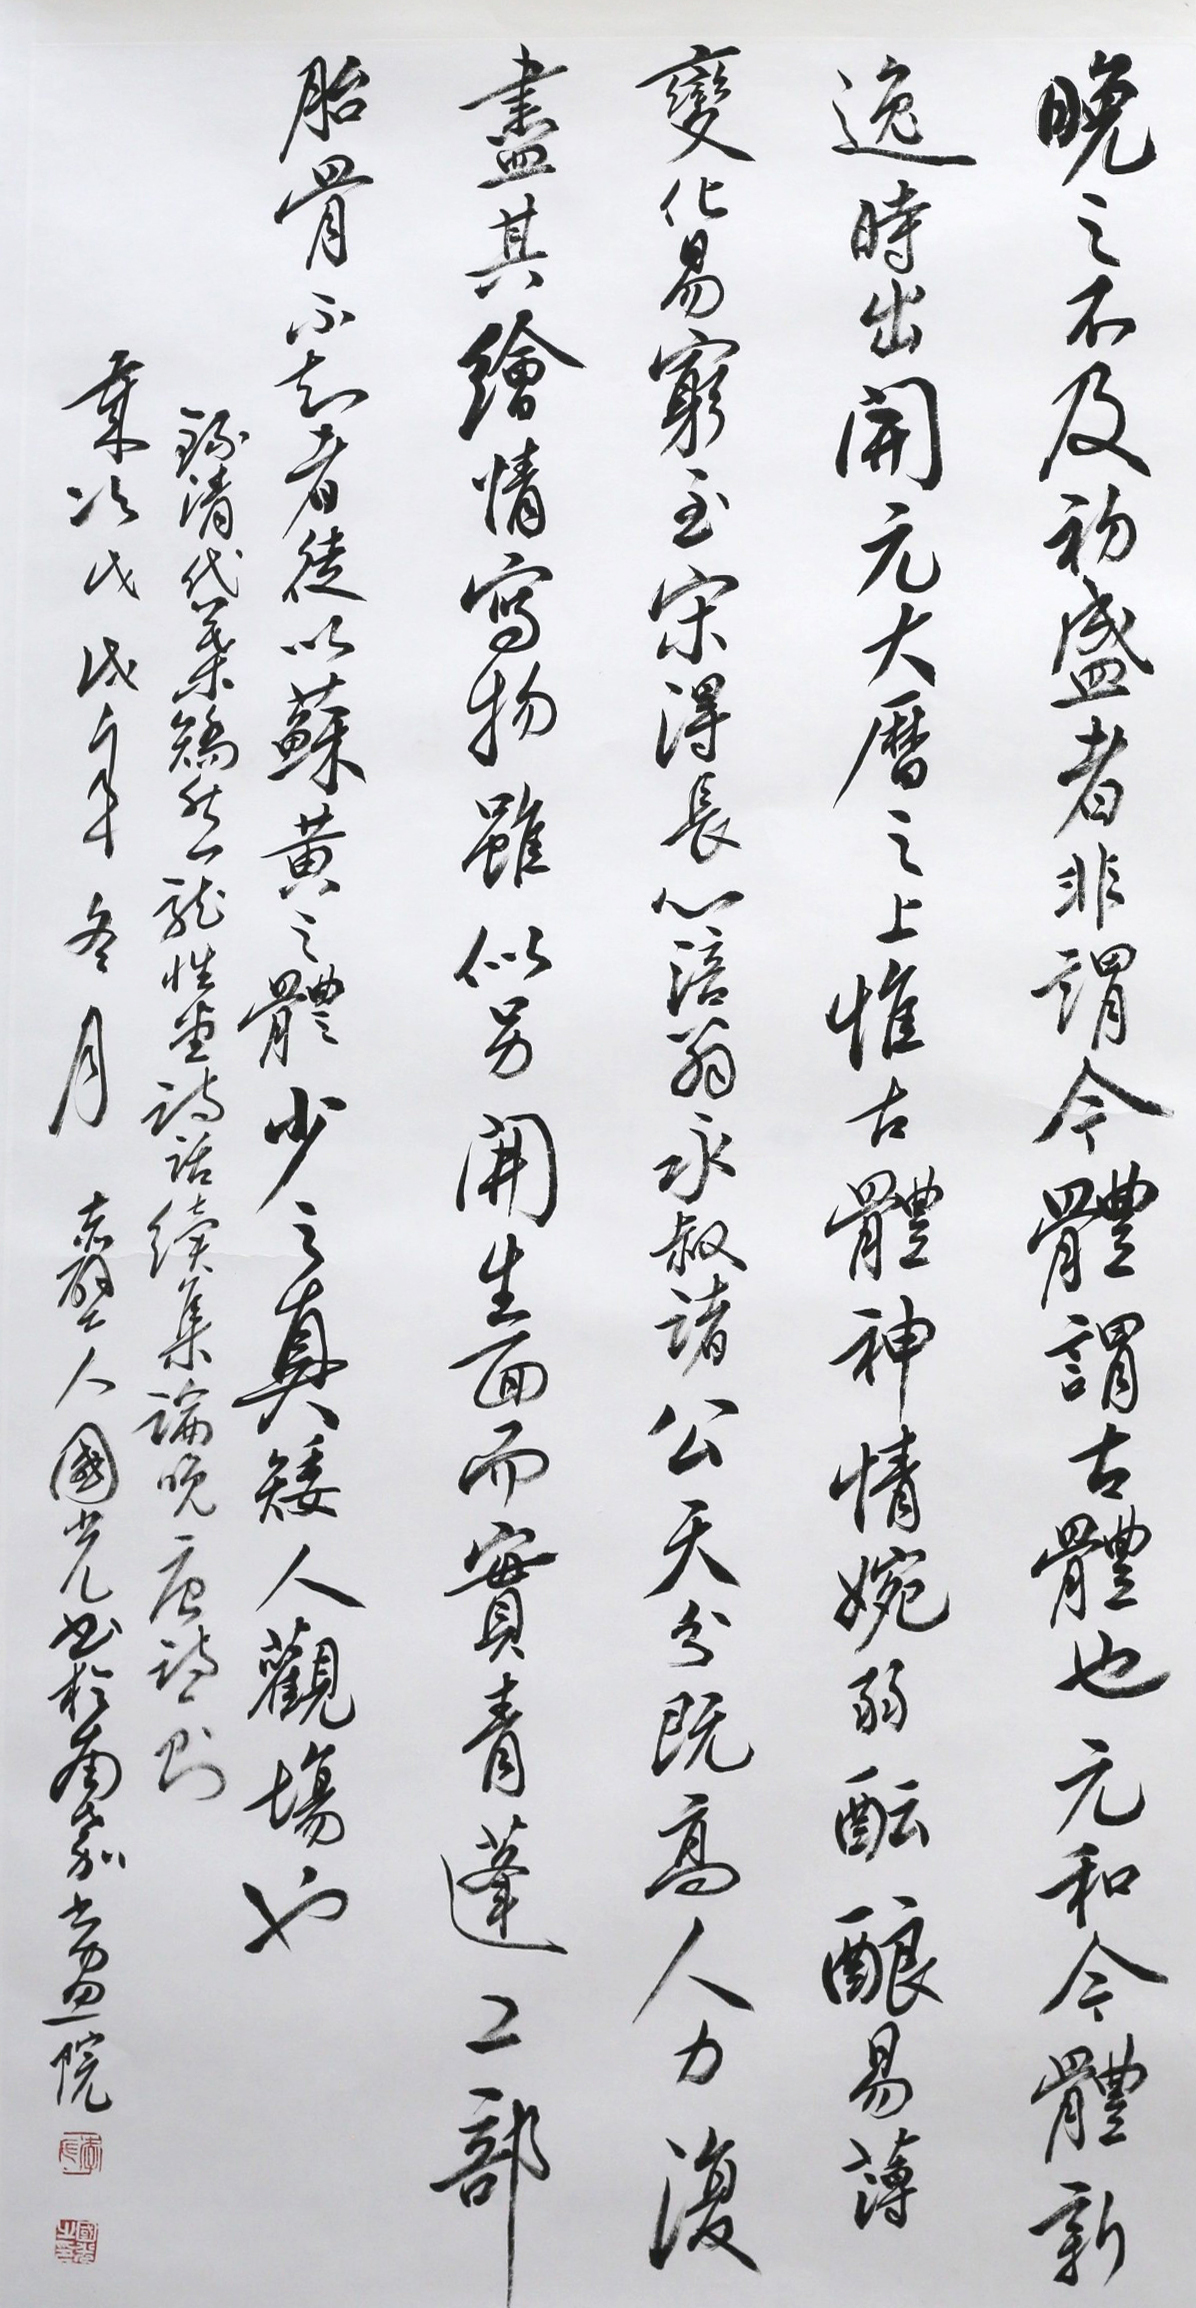 晚之不及初盛者非謂今體謂古體也元和今體新
逸時出開元大曆之上惟古體神情婉弱酝酿易薄
變化易窮至宋得長心涪翁永叔諸公天分既高人力復
盡其繪情寫物雖似另開生面而實青蓮工部
胎骨不知者徒以蘇黃之體少之真矮人觀場也
錄清代葉矯然龍性堂詩話續集論晚唐詩一則
歲次戊戌年冬月 赤壁人國光书於南嘉书畫院